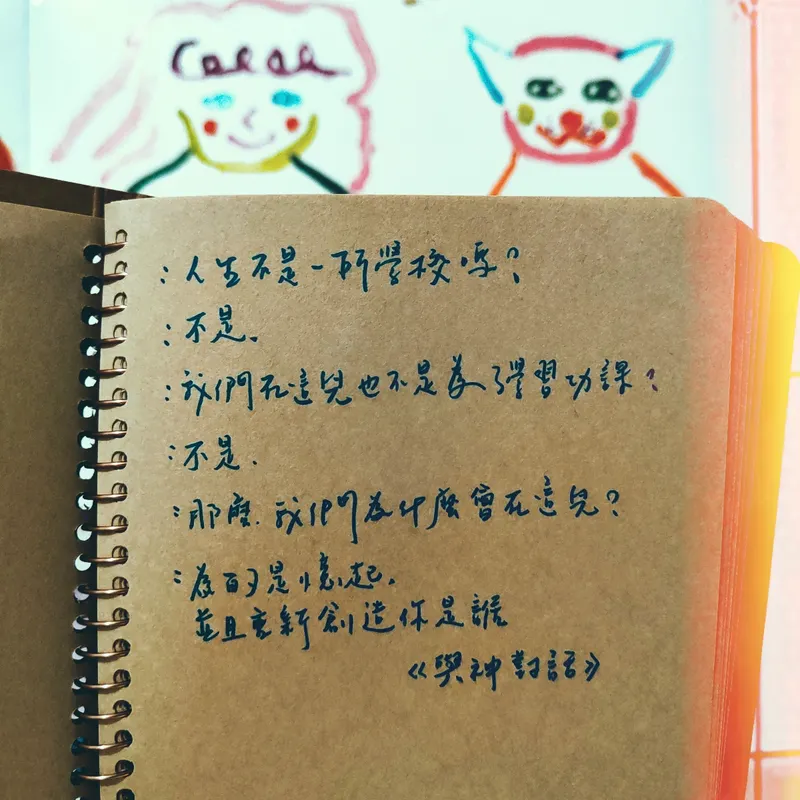 :人生不是一所學校嗎?
:不是。
:我們在這兒也不是為了學習功課?
:不是.
:那麼.我們為什麼會在這兒?
:為的是憶起.
並且重新創造你是誰
《與神對話》